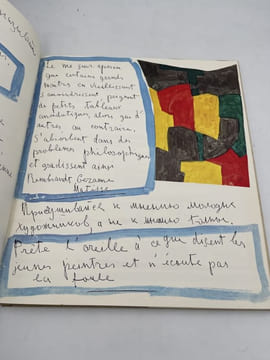 Je me suis aperçu
que certains grands
maitres en vieillissant
s'amoindrissent peignent
de petits tableaux
anecdotiques, alors que d'
autres au contraire
s'absorbent dans des
problèmes philosophiques
et grandissent ainsi
Rembrandt Cezanne
Matisse
Прислушивайся к мнению молодых
художников, а не к мнению толпы.
Prête l'oreille à ce que disent les
jeunes peintres et n'écoute pas
la foule